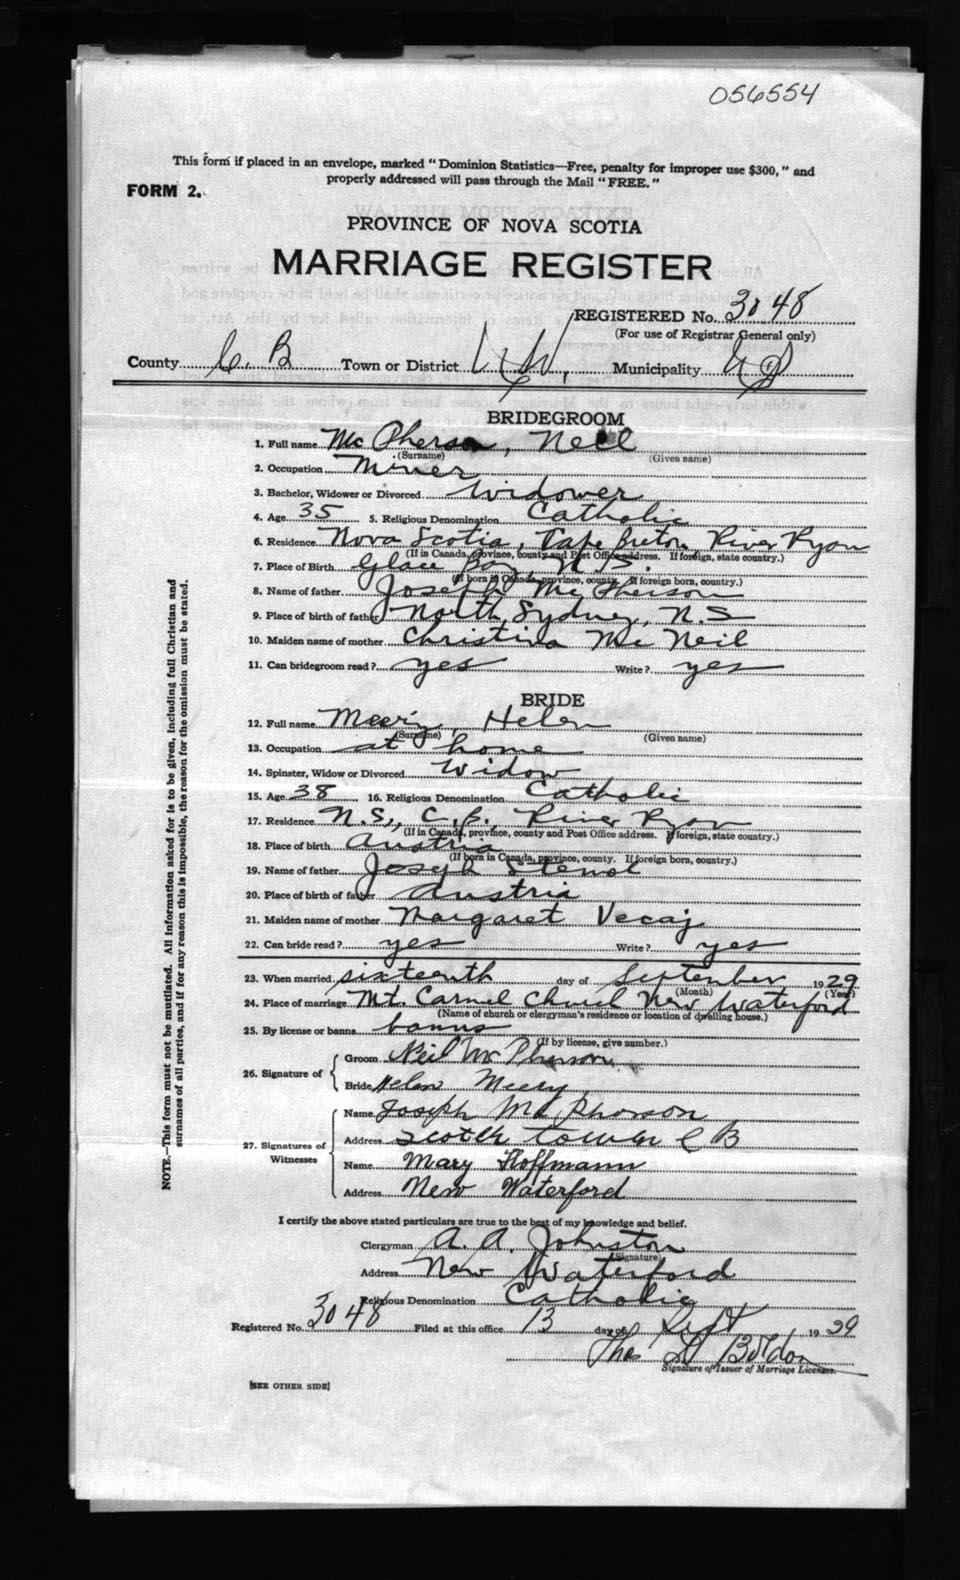 056554
This form if placed in an envelope, marked "Dominion Statistics—Free, penalty for improper use $300," and
properly addressed will pass through the Mail "FREE."
FORM 2.
PROVINCE OF NOVA SCOTIA
MARRIAGE REGISTER
REGISTERED No. 3048
(For use of Registrar General only)
County C. B Town or District Municipality
BRIDEGROOM
1. Full name Mc Pherson, Neil
(Surname) (Given name)
2. Occupation Miner
3. Bachelor, Widower or Divorced Widower
4. Age 35 5. Religious Denomination Catholic
6. Residence Nova Scotia, Cape Breton, River Ryan
(If in Canada, province, county and Post Office address. If foreign, state country.)
7. Place of Birth Glace Bay, N.S.
(If born in Canada, province, county. If foreign born, country.)
8. Name of father Joseph Mc Pherson
9. Place of birth of father North Sydney, N.S
10. Maiden name of mother Christina Mc Neil
11. Can bridegroom read? yes Write? yes
BRIDE
12. Full name Helen
(Surname) (Given name)
13. Occupation at home
14. Spinster, Widow or Divorced Widow
15. Age 38 16. Religious Denomination Catholic
17. Residence N.S., C.B., River Ryan
(If in Canada, province, county and Post Office address. If foreign, state country.)
18. Place of birth Austria
(If born in Canada, province, county. If foreign born, country.)
19. Name of father Joseph
20. Place of birth of father Austria
21. Maiden name of mother Margaret Vecaj
22. Can bride read? yes Write? yes
23. When married sixteenth day of September 1929
(Month) (Year)
24. Place of marriage Mt. Carmel Church New Waterford
(Name of church or clergyman's residence or location of dwelling house.)
25. By license or banns banns
(If by license, give number.)
26. Signature of
Groom Neil Mc Pherson
Bride Helen Meery
27. Signatures of Witnesses
Name Joseph Mc Pherson
Address C B
Name Mary Hoffmann
Address New Waterford
I certify the above stated particulars are true to the best of my knowledge and belief.
Clergyman A. A. Johnston
(Signature)
Address New Waterford
Religious Denomination Catholic
Registered No. 3048 Filed at this office 13 day of Sept 1929
Thos
Signature of Issuer of Marriage Licenses.
[SEE OTHER SIDE]
NOTE.—This form must not be mutilated. All information asked for is to be given, including full Christian and
surnames of all parties, and if for any reason this is impossible, the reason for the omission must be stated.